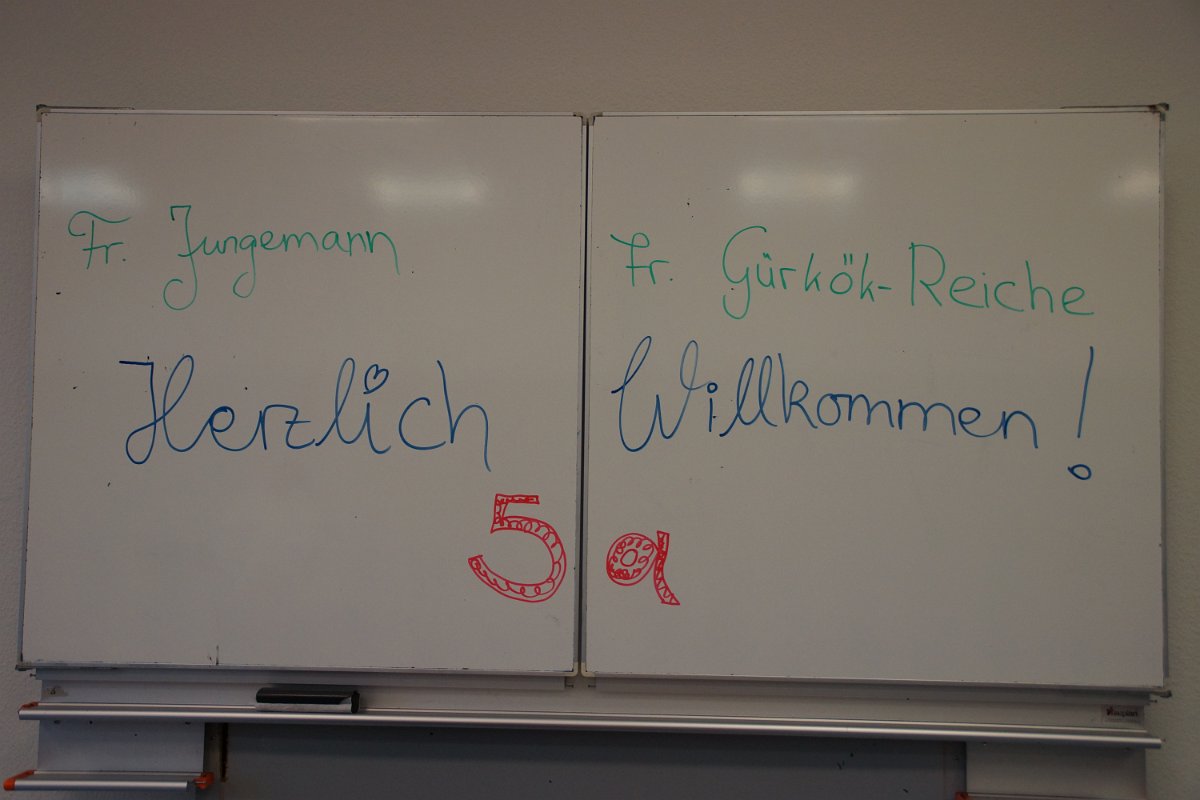 Fr. Jungemann Fr. Gürkök-Reiche
Herzlich Willkommen!
5a